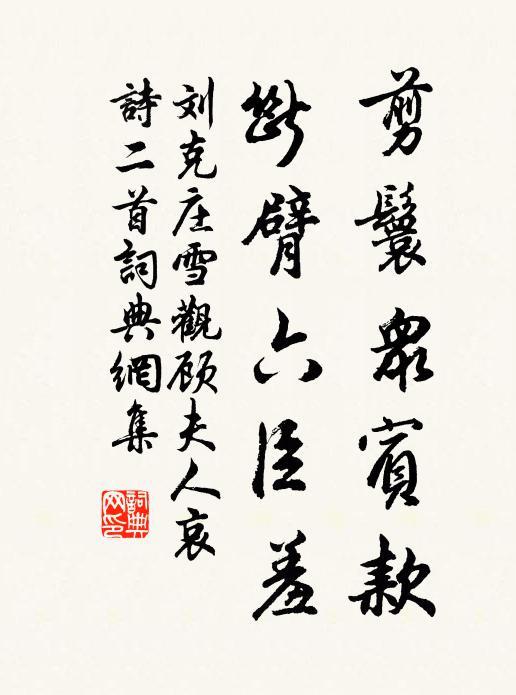 剪鬟衆賓款
斷臂六臣羞
刘克庄雪觀顾夫人哀
詩二首詞典網集
詞典网印